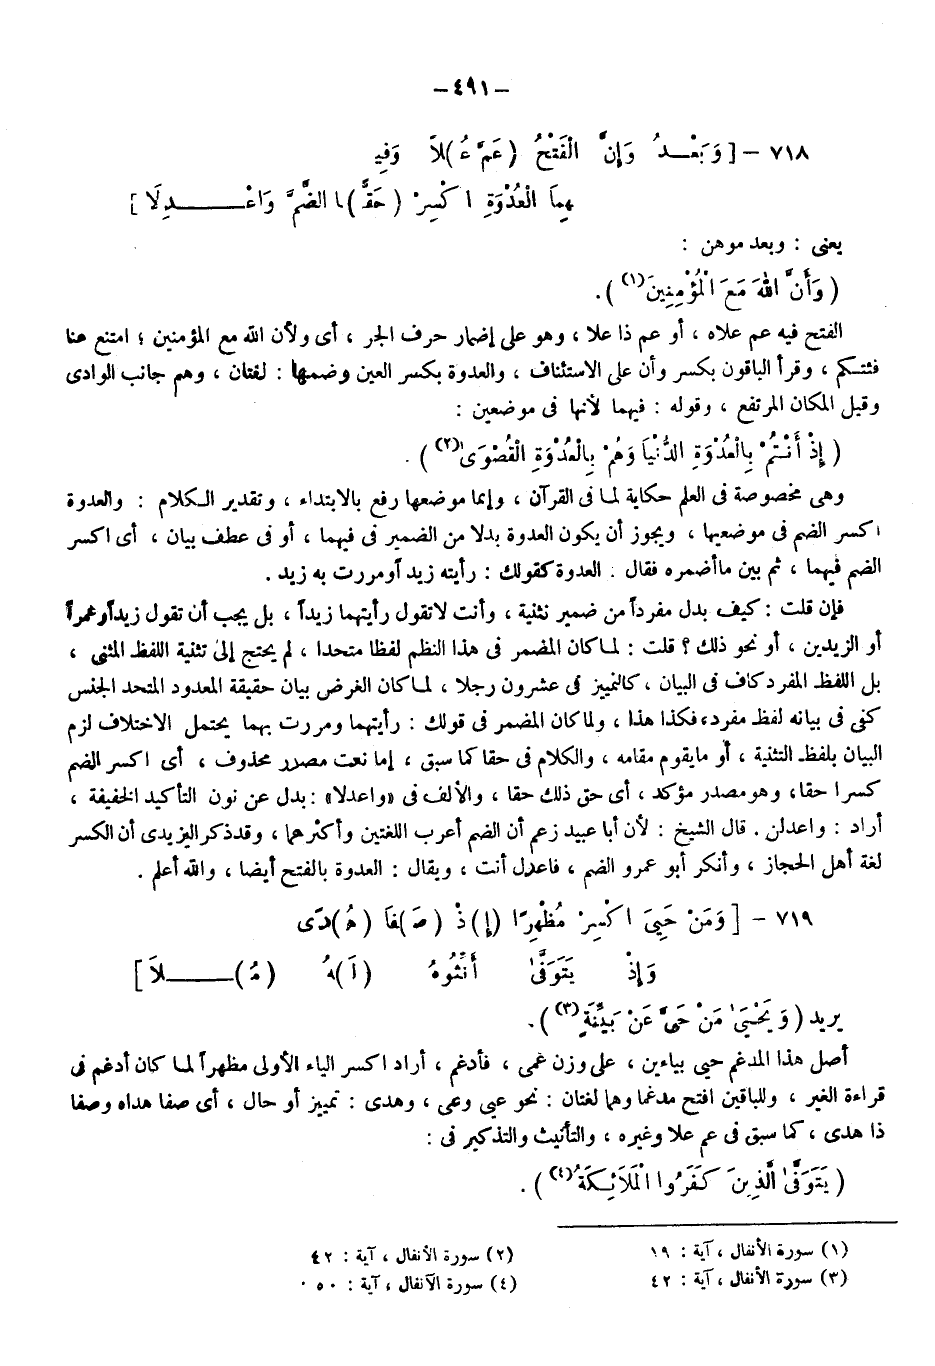 -٤٩١-
٧١٨ - [ وَبَعْـدُ وَإِنَّ الْفَتْحُ (عَمَّ عُ)لاَ وَفِيـ
ـهِمَا الْعُدْوَةِ اكْسِرْ (حَقًّـ)ـا الضَّمَّ وَاعْـدِلَا ]
يعنى : وبعد موهن :
( وَأَنَّ اللهَ مَعَ الْمُؤْمِنِينَ(١) ).
الفتح فيه عم علاه ، أو عم ذا علا ، وهو على إضمار حرف الجر ، أى ولأن الله مع المؤمنين ؛ امتنع هنا
فئتكم ، وقرأ الباقون بكسر وأن على الاستئناف ، والعدوة بكسر العين وضمها : لغتان ، وهم جانب الوادى
وقيل المكان المرتفع ، وقوله : فيهما لأنها فى موضعين :
( إِذْ أَنْتُمْ بِالْعُدْوَةِ الدُّنْيَا وَهُمْ بِالْعُدْوَةِ الْقُصْوَى(٢) ) .
وهى مخصوصة فى العلم حكاية لما فى القرآن ، وإنما موضعها رفع بالابتداء ، وتقدير الكلام : والعدوة
اكسر الضم فى موضعيها ، ويجوز أن يكون العدوة بدلا من الضمير فى فيهما ، أو فى عطف بيان ، أى اكسر
الضم فيهما ، ثم بين ماأضمره فقال . العدوة كقولك : رأيته زيد أومررت به زيد .
فإن قلت : كيف بدل مفرداً من ضمير تثنية ، وأنت لاتقول رأيتهما زيداً ، بل يجب أن تقول زيداًوعمراً
أو الزيدين ، أو نحو ذلك ؟ قلت : لما كان المضمر فى هذا النظم لفظا متحدا ، لم يحتج إلى تثنية اللفظ المثنى ،
بل اللفظ المفرد كاف فى البيان ، كالتمييز فى عشرون رجلا ، لما كان الغرض بيان حقيقة المعدود المتحد الجنس
كفى فى بيانه لفظ مفرد، فكذا هذا ، ولما كان المضمر فى قولك : رأيتهما ومررت بهما يحتمل الاختلاف لزم
البيان بلفظ التثنية ، أو مايقوم مقامه ، والكلام فى حقا كما سبق ، إما نعت مصدر محذوف ، أى اكسر الضم
كسرا حقا، وهو مصدر مؤكد ، أى حق ذلك حقا ، والألف فى «واعدلا» : بدل عن نون التأكيد الخفيفة ،
أراد : واعدلن . قال الشيخ : لأن أبا عبيد زعم أن الضم أعرب اللغتين وأكثرهما ، وقد ذكر اليزيدى أن الكسر
لغة أهل الحجاز ، وأنكر أبو عمرو الضم ، فاعدل أنت ، ويقال : العدوة بالفتح أيضا ، والله أعلم .
٧١٩ - [ وَمَنْ حَيِيَ اكْسِرْ مُظْهِرًا (إِ)ذْ (صَـ)ـفَا (هُـ)ـدًى
وَإِذْ يَتَوَفَّى أَنِّثُوهُ (لَ)ـهُ (مُـ)ـلاَ ]
يريد ( وَيَحْيَىٰ مَنْ حَىَّ عَنْ بَيِّنَةٍ(٣) ).
أصل هذا المدغم حيى بياءين ، على وزن غمى ، فأدغم ، أراد اكسر الياء الأولى مظهراً لما كان أدغم فى
قراءة الغير ، وللباقين افتح مدغما وهما لغتان : نحو عيى وعى ، وهدى : تمييز أو حال ، أى صفا هداه وصفا
ذا هدى ، كما سبق فى عم علا وغيره ، والتأنيث والتذكير فى :
( يَتَوَفَّى الَّذِينَ كَفَرُوا الْمَلَائِكَةُ(٤) ) .
(١) سورة الأنفال ، آية : ١٩
(٢) سورة الأنفال ، آية : ٤٢
(٣) سورة الأنفال ، آية : ٤٢
(٤) سورة الأنفال ، آية : ٥٠